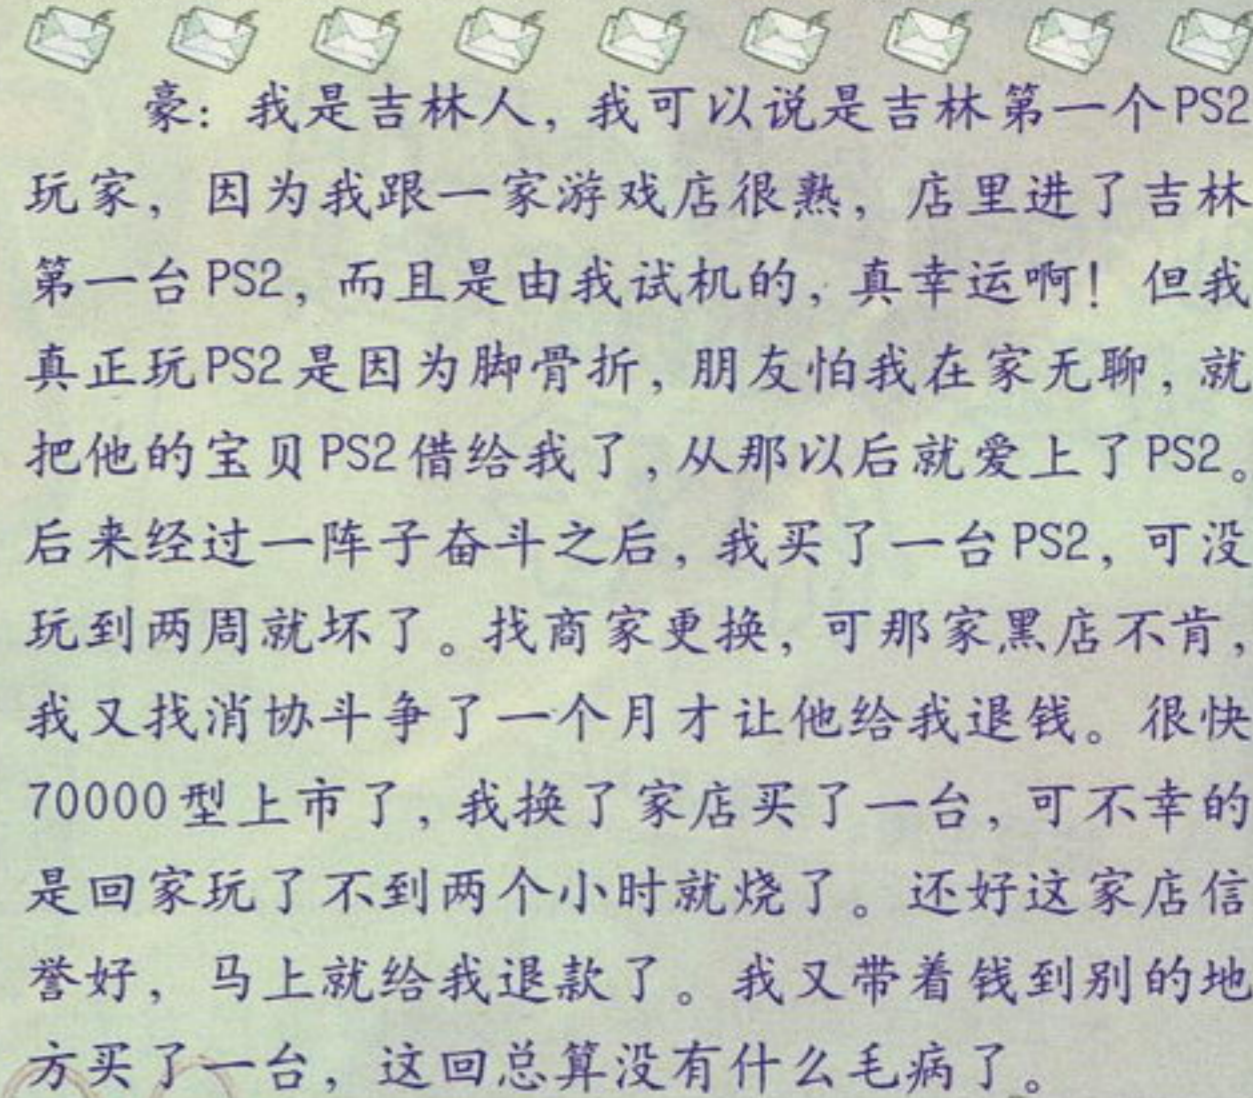 豪：我是吉林人，我可以说是吉林第一个PS2
玩家，因为我跟一家游戏店很熟，店里进了吉林
第一台PS2，而且是由我试机的，真幸运啊！但我
真正玩PS2是因为脚骨折，朋友怕我在家无聊，就
把他的宝贝PS2借给我了，从那以后就爱上了PS2。
后来经过一阵子奋斗之后，我买了一台PS2，可没
玩到两周就坏了。找商家更换，可那家黑店不肯，
我又找消协斗争了一个月才让他给我退钱。很快
70000型上市了，我换了家店买了一台，可不幸的
是回家玩了不到两个小时就烧了。还好这家店信
誉好，马上就给我退款了。我又带着钱到别的地
方买了一台，这回总算没有什么毛病了。